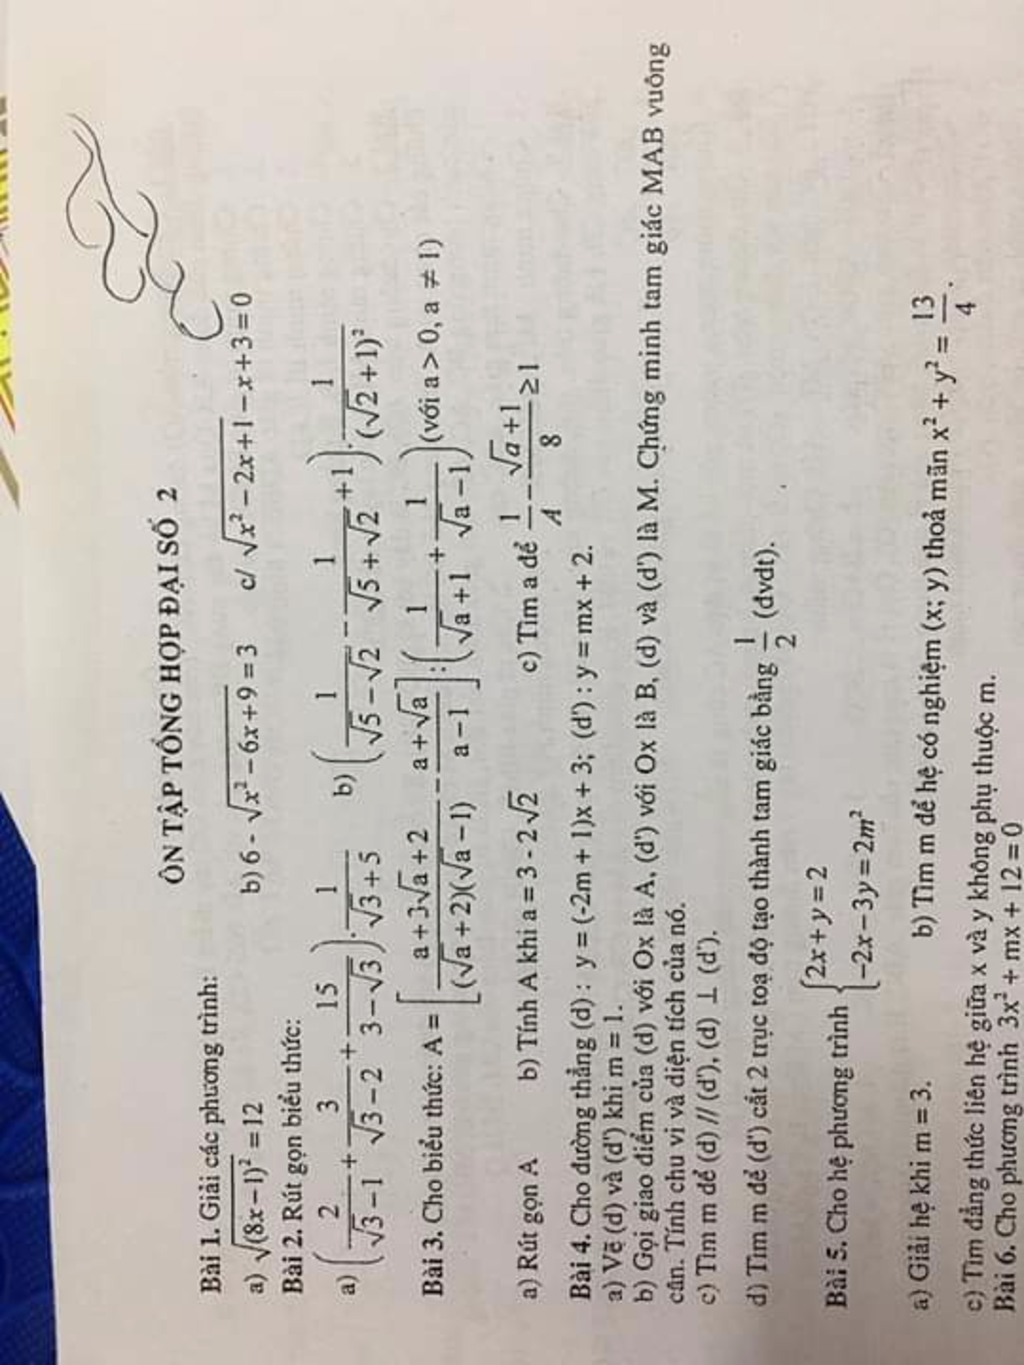 ÔN TẬP TỔNG HỢP ĐẠI SỐ 2
Bài 1. Giải các phương trình:
a) √(8x−1)² = 12 b) 6 - √x² − 6x + 9 = 3 c/ √x² − 2x + 1 − x + 3 = 0
Bài 2. Rút gọn biểu thức:
a) (2/(√3 − 1) + 3/(√3 − 2) + 15/(3 − √3)) . 1/(√3 + 5) b) (1/(√5 − √2) − 1/(√5 + √2) + 1) . 1/(√2 + 1)²
Bài 3. Cho biểu thức: A = [(a + 3√a + 2)/((√a + 2)(√a − 1)) − (a + √a)/(a − 1)] : (1/(√a + 1) + 1/(√a − 1)) (với a > 0, a ≠ 1)
a) Rút gọn A b) Tính A khi a = 3 - 2√2 c) Tìm a để 1/A − (√a + 1)/8 ≥ 1
Bài 4. Cho đường thẳng (d) : y = (-2m + 1)x + 3; (d') : y = mx + 2.
a) Vẽ (d) và (d') khi m = 1.
b) Gọi giao điểm của (d) với Ox là A, (d') với Ox là B, (d) và (d') là M. Chứng minh tam giác MAB vuông
cân. Tính chu vi và diện tích của nó.
c) Tìm m để (d) // (d'), (d) ⊥ (d').
d) Tìm m để (d') cắt 2 trục toạ độ tạo thành tam giác bằng 1/2 (đvdt).
Bài 5. Cho hệ phương trình {2x + y = 2
−2x − 3y = 2m²
a) Giải hệ khi m = 3. b) Tìm m để hệ có nghiệm (x; y) thoả mãn x² + y² = 13/4.
c) Tìm đẳng thức liên hệ giữa x và y không phụ thuộc m.
Bài 6. Cho phương trình 3x² + mx + 12 = 0